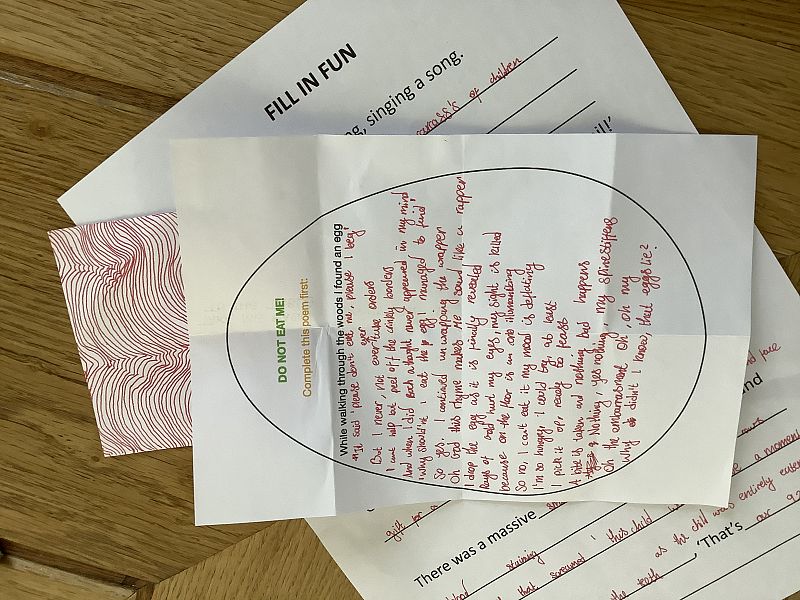 FILL IN FUN
ng, singing a song.
of children
ill!'
DO NOT EAT ME!
Complete this poem first:
While walking through the woods I found an egg
"It said 'please don't eat me, please I beg'
But I never, not ever take orders
I cant but peel off the wally borders
And when I did such a thought never appeared in my mind
'why shouldn't i eat the egg i managed to find'
So yes. I continued unwrapping the wrapper
Oh God this rhyme makes me sound like a rapper
I drop the egg as it is finally revealed
Rays of hurt my eyes, my sight is killed
because on the floor is an orb illuminating
So no, I can't eat it my mood is deflating
I'm so hungry I could beg, at least
I pick it up ready to feast
A bite is taken and nothing bad happens
Nothing, yes nothing, my spine stiffens
Oh the embarrassment Oh, oh my
Why didn't I know, that eggs lie?
face
nd
gift for a
a moment
There was a massive
staining
this child
as the child was entirely
that screamed
the teeth
, 'That's our